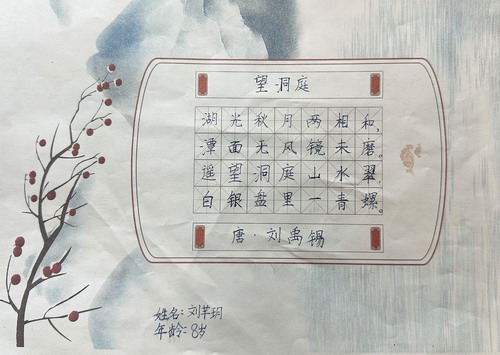 望洞庭
湖光秋月两相和，
潭面无风镜未磨。
遥望洞庭山水翠，
白银盘里一青螺。
唐·刘禹锡
姓名：刘芊玥
年龄：8岁